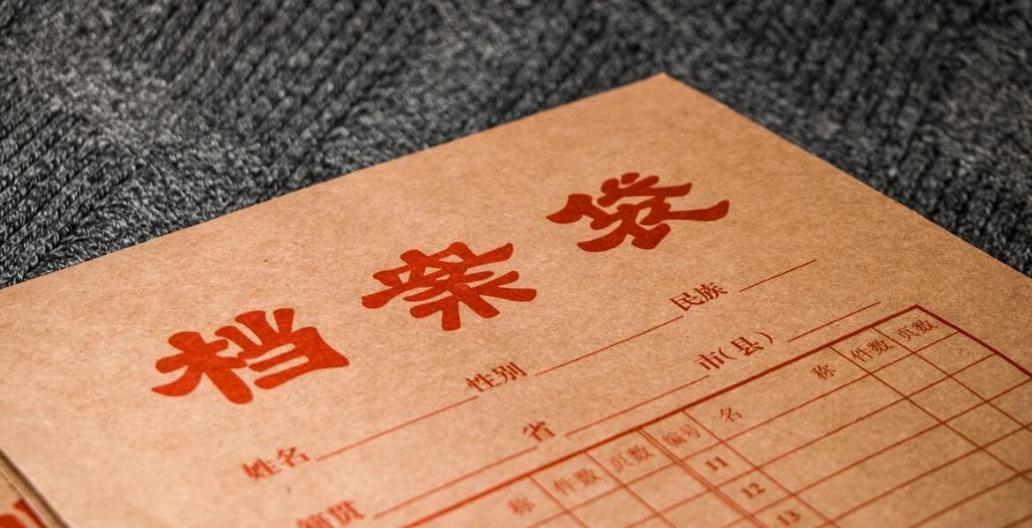 档案袋
姓名 性别 民族
籍贯 省 市(县)
称 件数 页数 编号 名 称 件数 页数
11
12
13